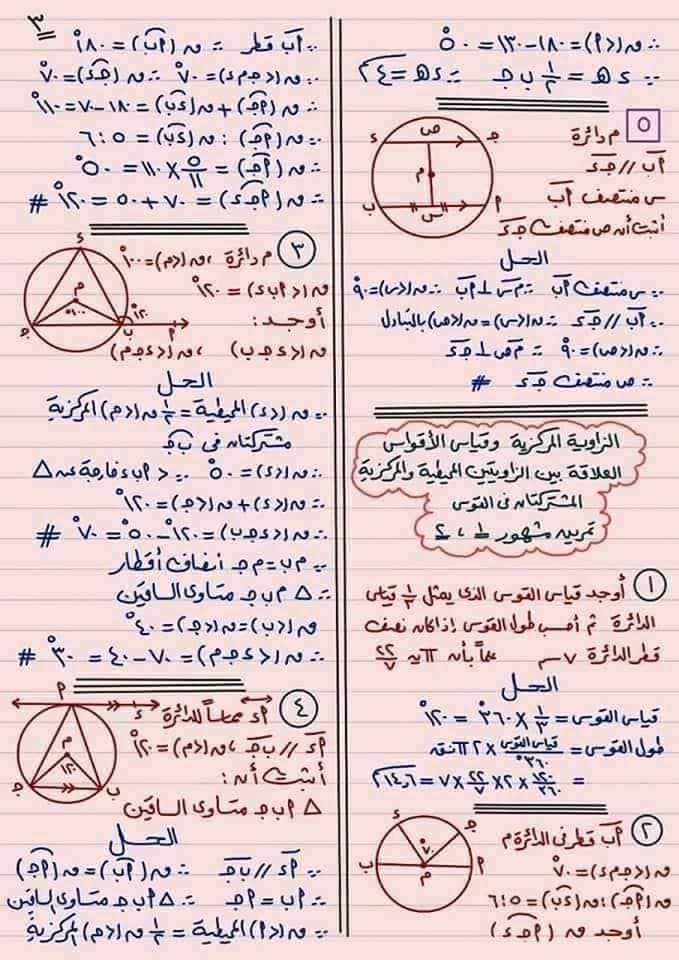 ∴ ق(دم) = ١٨٠ − ١٣٠ = ٥٠°
∵ س‌ه = ١/٢ ب ج ∴ ء ه = ٤ سم
٥ م دائرة
أب // جء
س منتصف أب
أثبت أن ص منتصف جء
الحل
∵ س منتصف أب ∴ م س ⊥ أب ∴ ق(دس) = ٩٠°
∵ أب // جء ∴ ق(دس) = ق(دص) بالتبادل
∴ ق(دص) = ٩٠° ∴ م ص ⊥ جء
∴ ص منتصف جء #
الزاوية المركزية وقياس الأقواس
العلاقة بين الزاويتين المحيطية والمركزية
المشتركتان فى القوس
تمرين مشهور ١ ، ٢
١ أوجد قياس القوس الذى يمثل ١/٣ قياس
الدائرة ثم أحسب طول القوس إذا كان نصف
قطر الدائرة ٧ سم علماً بأن π = ٢٢/٧
الحل
قياس القوس = ١/٣ × ٣٦٠° = ١٢٠°
طول القوس = قياس القوس/٣٦٠° × ٢ π نق
= ١٢٠/٣٦٠ × ٢ × ٢٢/٧ × ٧ = ١٤,٦ سم
٢ أب قطر فى الدائرة م
ق(دجمء) = ٧٠°
ق(أج) : ق(ءب) = ٥ : ٦
أوجد ق(أجء)
٣
∵ أب قطر ∴ ق(أب) = ١٨٠°
∵ ق(دجمء) = ٧٠° ∴ ق(جء) = ٧٠°
∴ ق(أج) + ق(ءب) = ١٨٠ − ٧٠ = ١١٠°
∵ ق(أج) : ق(ءب) = ٥ : ٦
∴ ق(أج) = ٥/١١ × ١١٠ = ٥٠°
∴ ق(أجء) = ٧٠ + ٥٠ = ١٢٠° #
٣ م دائرة ، ق(دم) = ١٠٠°
ق(دأبء) = ١٢٠°
أوجد :
ق(دءجب) ، ق(دءجم)
الحل
∵ ق(دء) المحيطية = ١/٢ ق(دم) المركزية
مشتركتان فى ب ج
∴ ق(دء) = ٥٠° ∵ د أ ب ء خارجة عن △
∴ ق(دء) + ق(دج) = ١٢٠°
∴ ق(دءجب) = ١٢٠° − ٥٠° = ٧٠° #
∵ م ب = م ج أنصاف أقطار
∴ △ م ب ج متساوى الساقين
ق(دب) = ق(دج) = ٤٠°
∴ ق(دءجم) = ٧٠ − ٤٠ = ٣٠° #
٤ أء مماساً للدائرة
أء // ب ج ، ق(دم) = ١٢٠°
أثبت أن :
△ أ ب ج متساوى الساقين
الحل
∵ أء // ب ج ∴ ق(أب) = ق(أج)
∴ أب = أج ∴ △ أ ب ج متساوى الساقين
∵ ق(دأ) المحيطية = ١/٢ ق(دم) المركزية